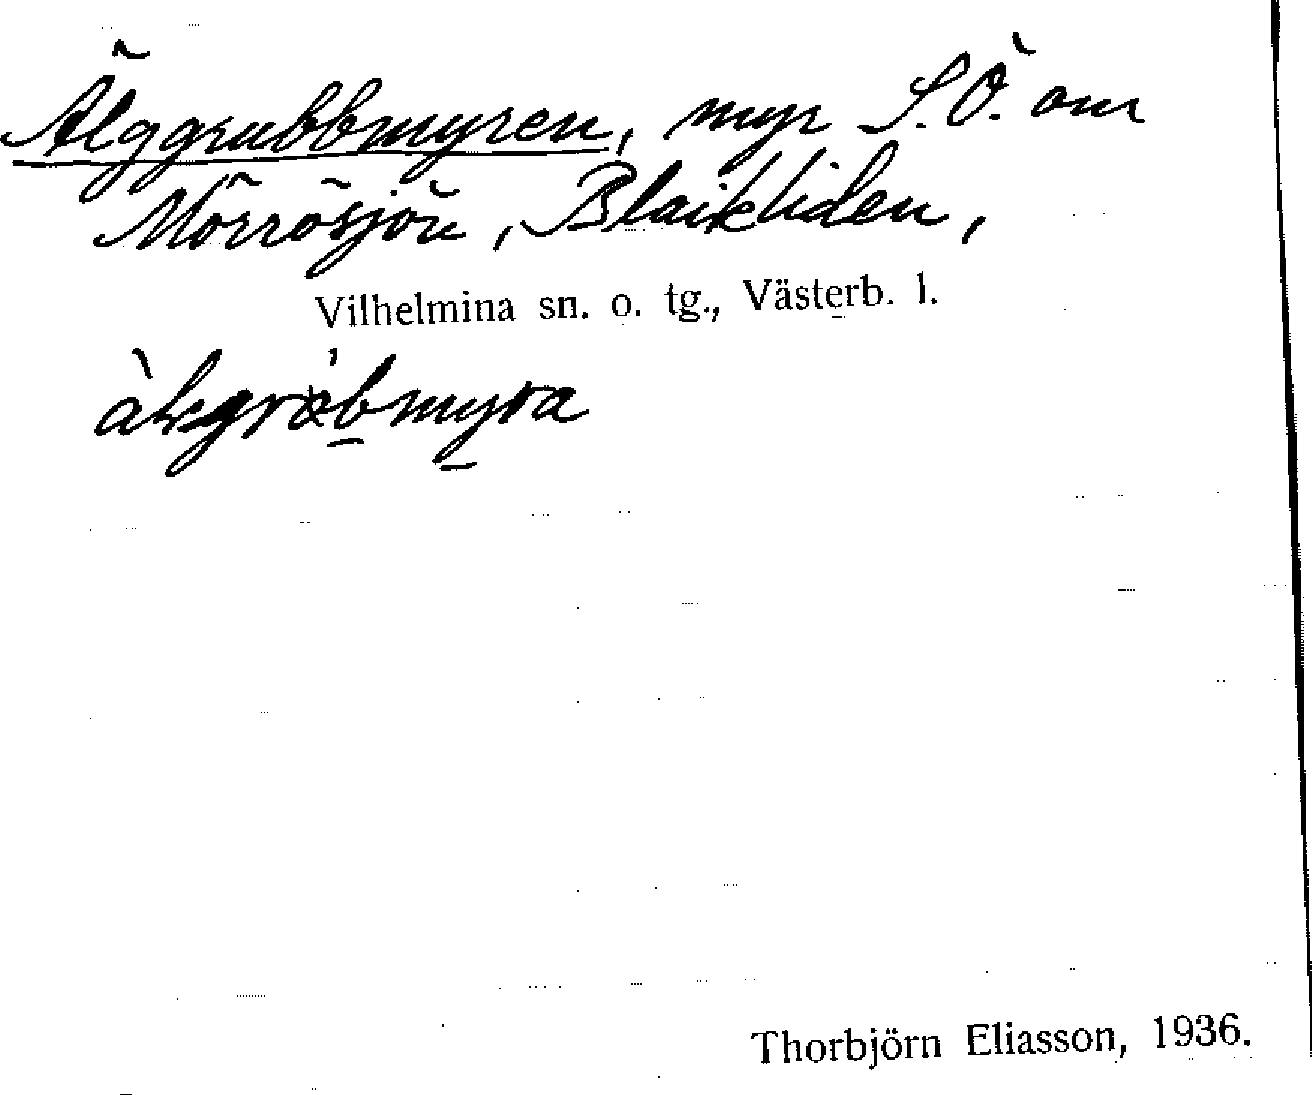 Älggrubbmyren, myr S.Ö. om
Mörrösjön, Blaikliden,
Vilhelmina sn. o. tg., Västerb. l.
Thorbjörn Eliasson, 1936.